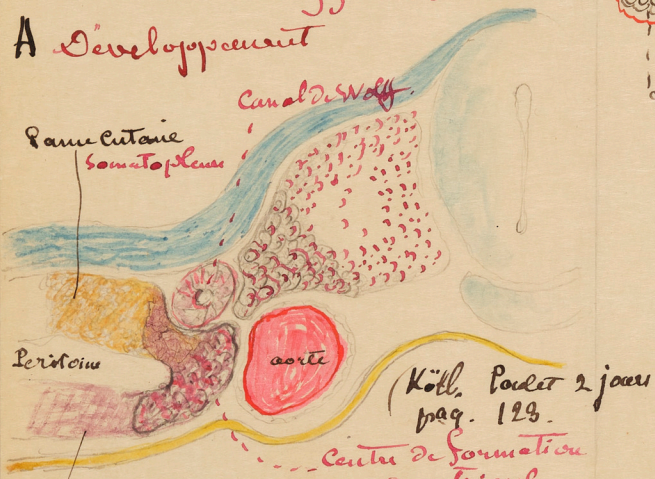 A Développement
Canal de Wolff.
Paroi Cutanée
Somatopleure
Péritoine
aorte
(Köll. Poulet 2 jours
pag. 123.
Centre de Formation